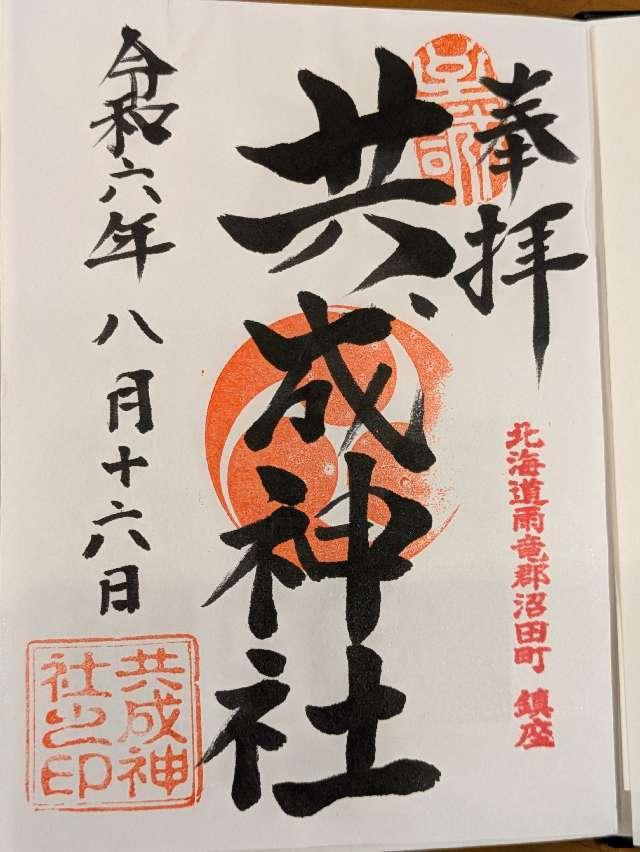 奉拝
北海道雨竜郡沼田町 鎮座
共成神社
令和六年八月十六日
共成神
社之印